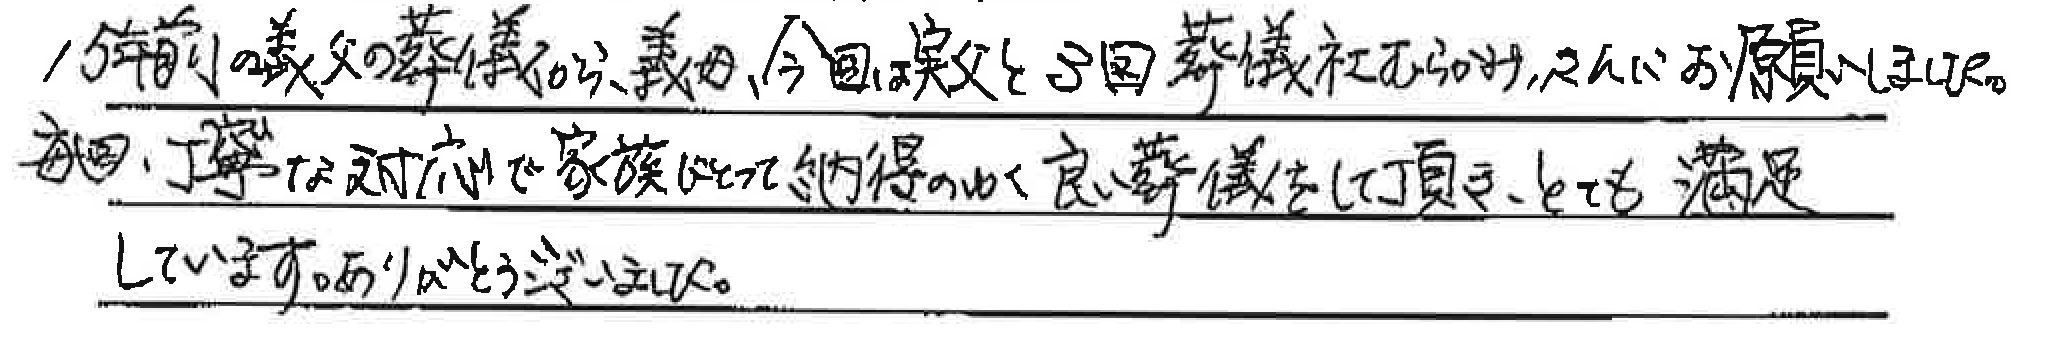 15年前の義父の葬儀から、義母、今回は実父と3回葬儀社むらかみさんにお願いしました。
毎回、丁寧な対応で家族にとって納得のゆく良い葬儀をして頂き、とても満足
しています。ありがとうございました。